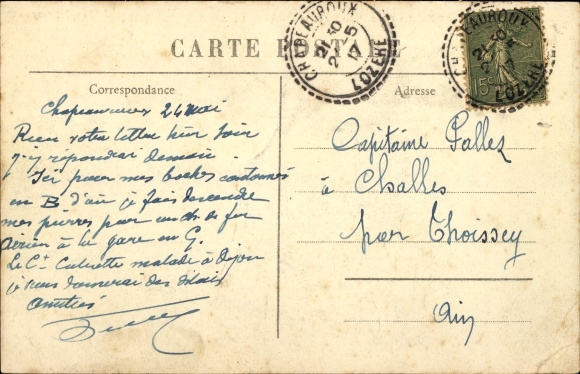 CARTE POSTALE
CHAPEAUROUX
LOZERE
CHAPEAUROUX
LOZERE
15
Correspondance
Adresse
Chapeauroux 24 Mai
Reçu votre lettre hier soir
j'y répondrai demain.
Ici pour mes boches cantonnés
en B d'où je fais descendre
mes pierres par un ch de fer
aérien à la gare en G.
Le Ct malade à Dijon
je vous donnerai des détails
Amitiés
Capitaine Gallez
à Challes
par Thoissey
Ain